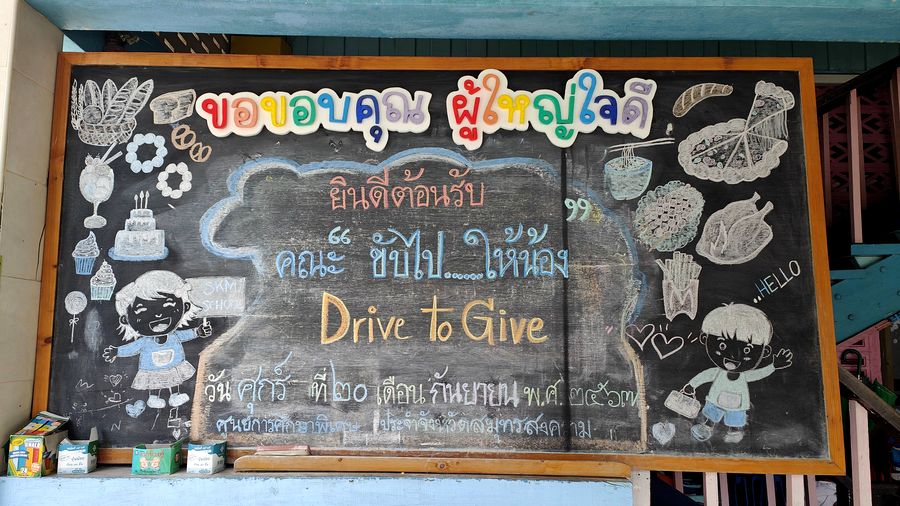 ขอขอบคุณ ผู้ใหญ่ใจดี
ยินดีต้อนรับ
คณะ “ ขับไป.....ให้น้อง ”
Drive to Give
วัน ศุกร์ ที่ ๒๐ เดือน กันยายน พ.ศ. ๒๕๖๗
ศูนย์การศึกษาพิเศษ ประจำจังหวัดสมุทรสงคราม
SKM
SCHOOL
..HELLO